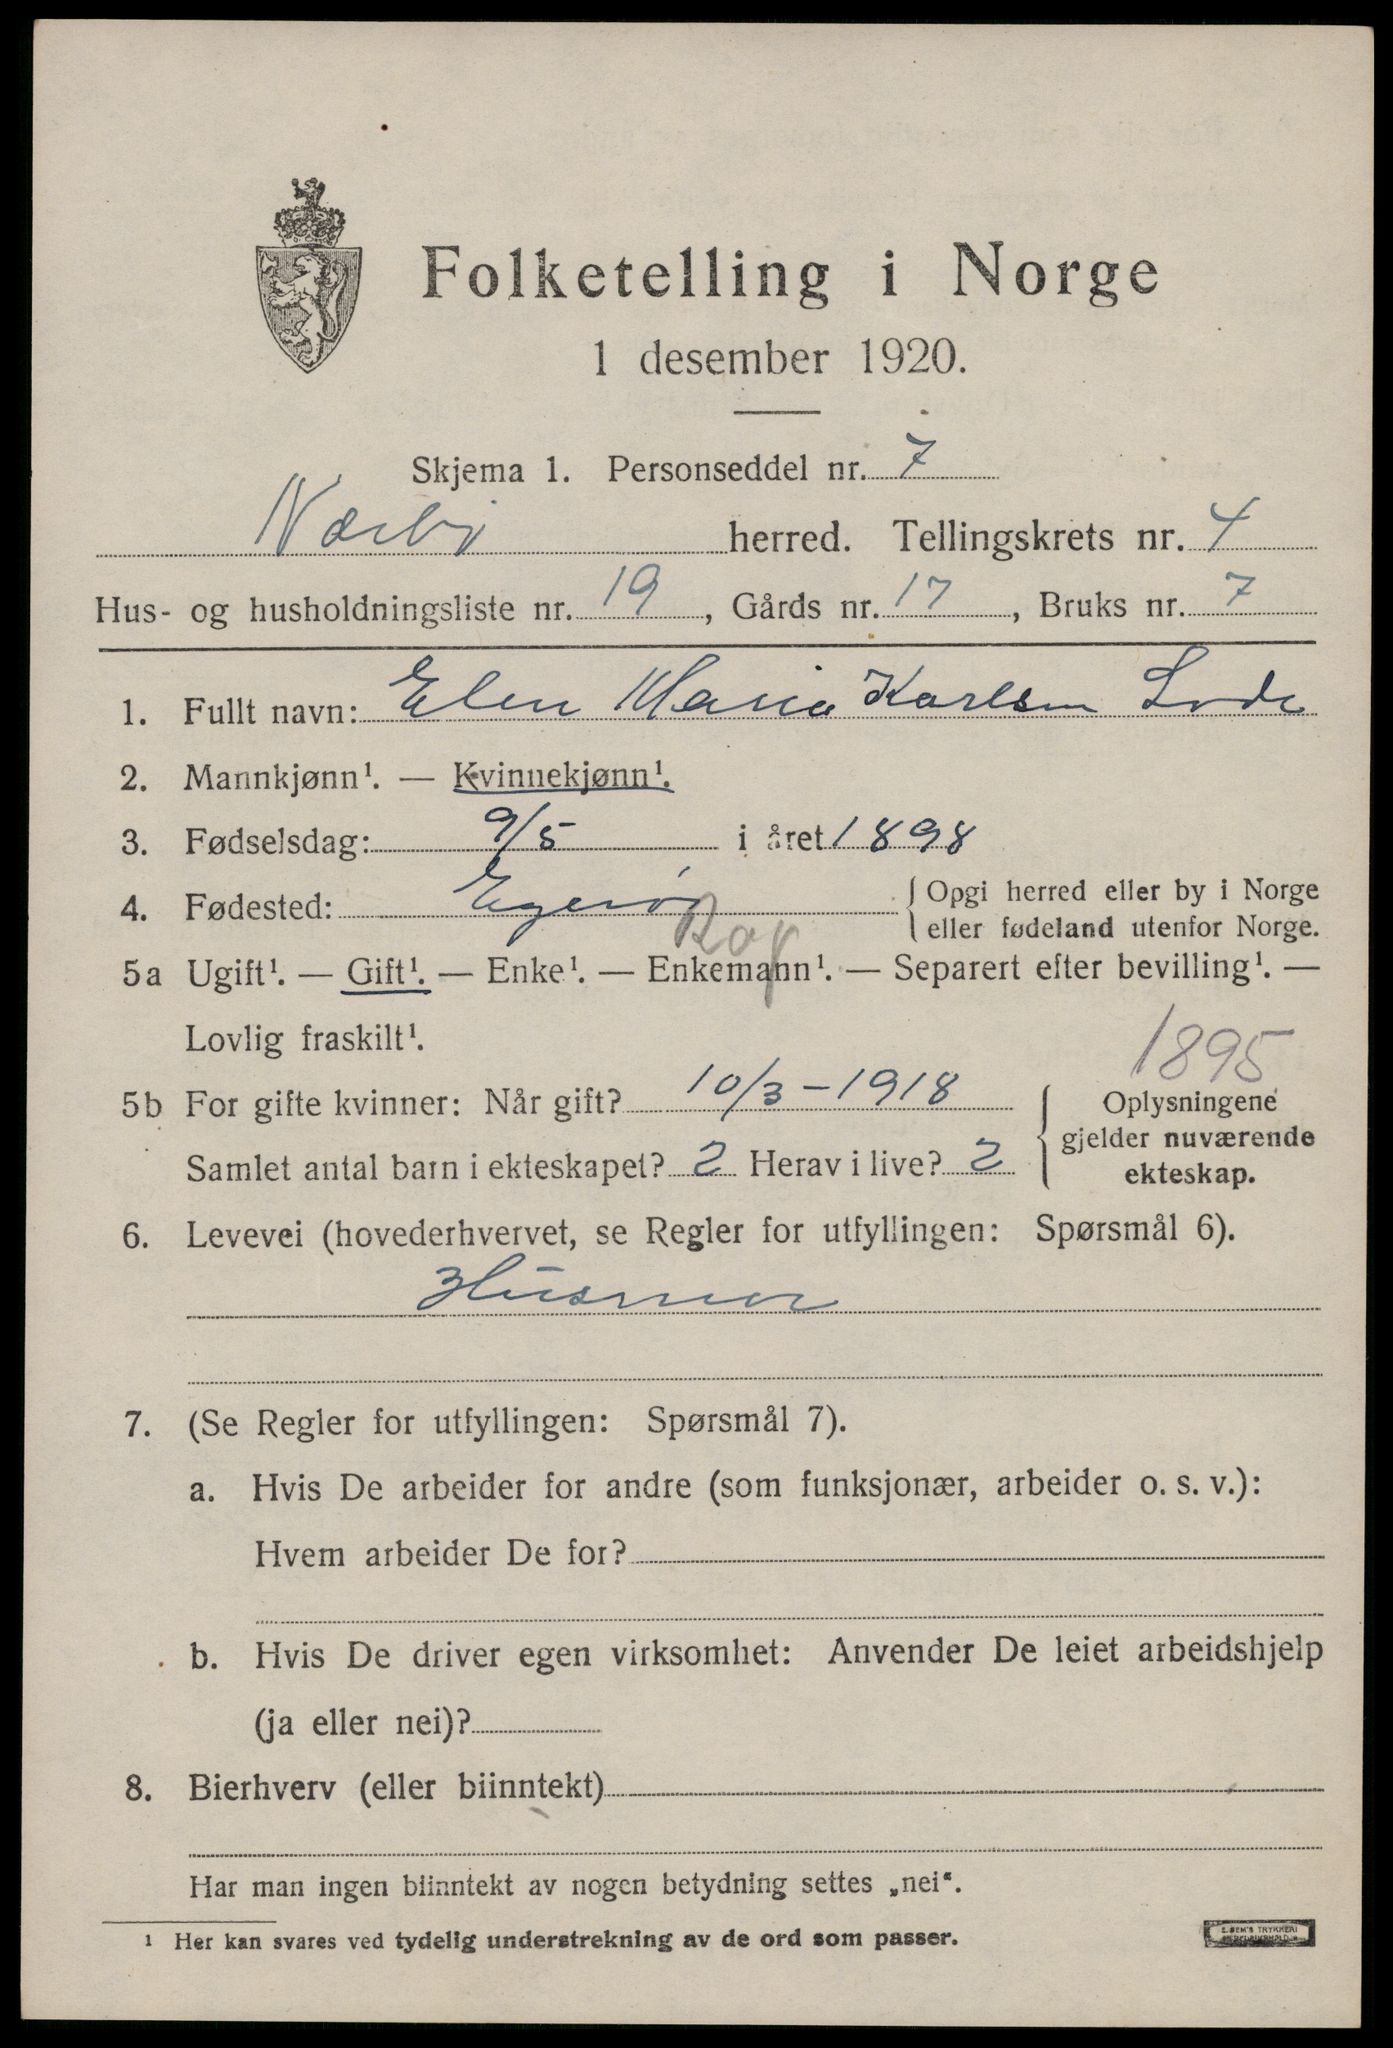 Folketelling i Norge
1 desember 1920.
Skjema 1. Personseddel nr. 7
Nærbø herred. Tellingskrets nr. 4
Hus- og husholdningsliste nr. 19, Gårds nr. 17, Bruks nr. 7
1. Fullt navn: Elen Maria Karlsen Lode
2. Mannkjønn¹. — Kvinnekjønn¹.
3. Fødselsdag: 9/5 i året 1898
4. Fødested: Egerøy { Opgi herred eller by i Norge
eller fødeland utenfor Norge.
5a Ugift¹. — Gift¹. — Enke¹. — Enkemann¹. — Separert efter bevilling¹. —
Lovlig fraskilt¹.
1895
5b For gifte kvinner: Når gift? 10/3-1918
Samlet antal barn i ekteskapet? 2 Herav i live? 2
{ Oplysningene
gjelder nuværende
ekteskap.
6. Levevei (hovederhvervet, se Regler for utfyllingen: Spørsmål 6).
Husmor
7. (Se Regler for utfyllingen: Spørsmål 7).
a. Hvis De arbeider for andre (som funksjonær, arbeider o. s. v.):
Hvem arbeider De for?
b. Hvis De driver egen virksomhet: Anvender De leiet arbeidshjelp
(ja eller nei)?
8. Bierhverv (eller biinntekt)
Har man ingen biinntekt av nogen betydning settes „nei“.
¹ Her kan svares ved tydelig understrekning av de ord som passer.